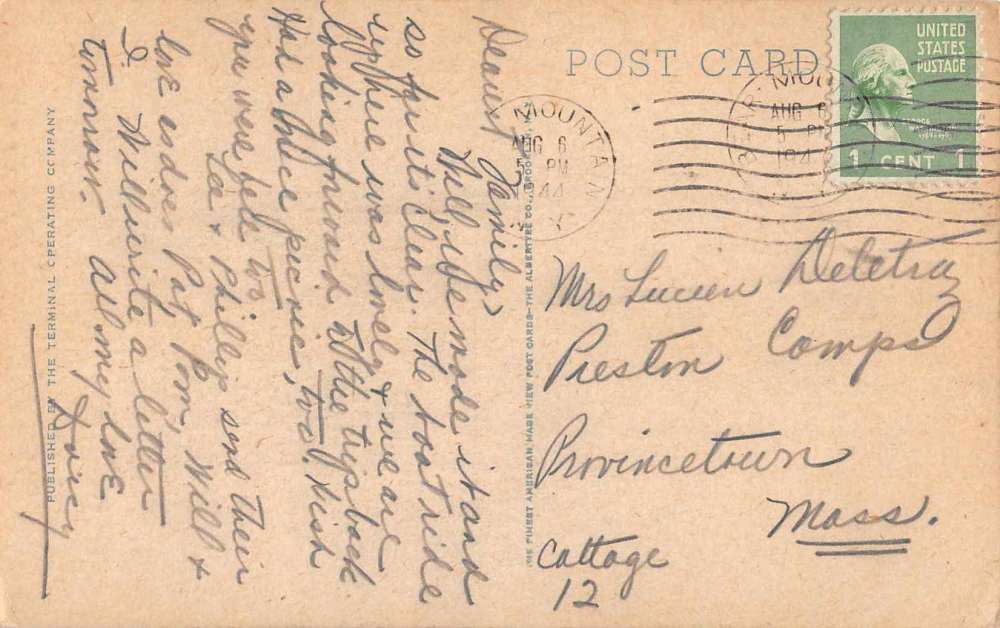 POST CARD
UNITED
STATES
POSTAGE
1 CENT 1
MOUNTAIN
AUG 6
5 PM
1944
N.Y.
BEAR MOU
AUG 6
5 PM
194
Dearest Family,
Well, we made it and
so far it's clear. The boat ride
up here was lovely & we are
looking forward to the trip back.
Had a nice picnic, too. Wish
you were here too.
& Phillip send their
love as does Pat, Pom, Will &
I. Will write a letter
tomorrow. All my love
Mrs Lucien Deletra
Preston Camps
Provincetown
Mass.
Cottage
12
THE FINEST AMERICAN MADE VIEW POST CARDS—THE ALBERTYPE CO., BROOKLYN,
PUBLISHED BY THE TERMINAL OPERATING COMPANY